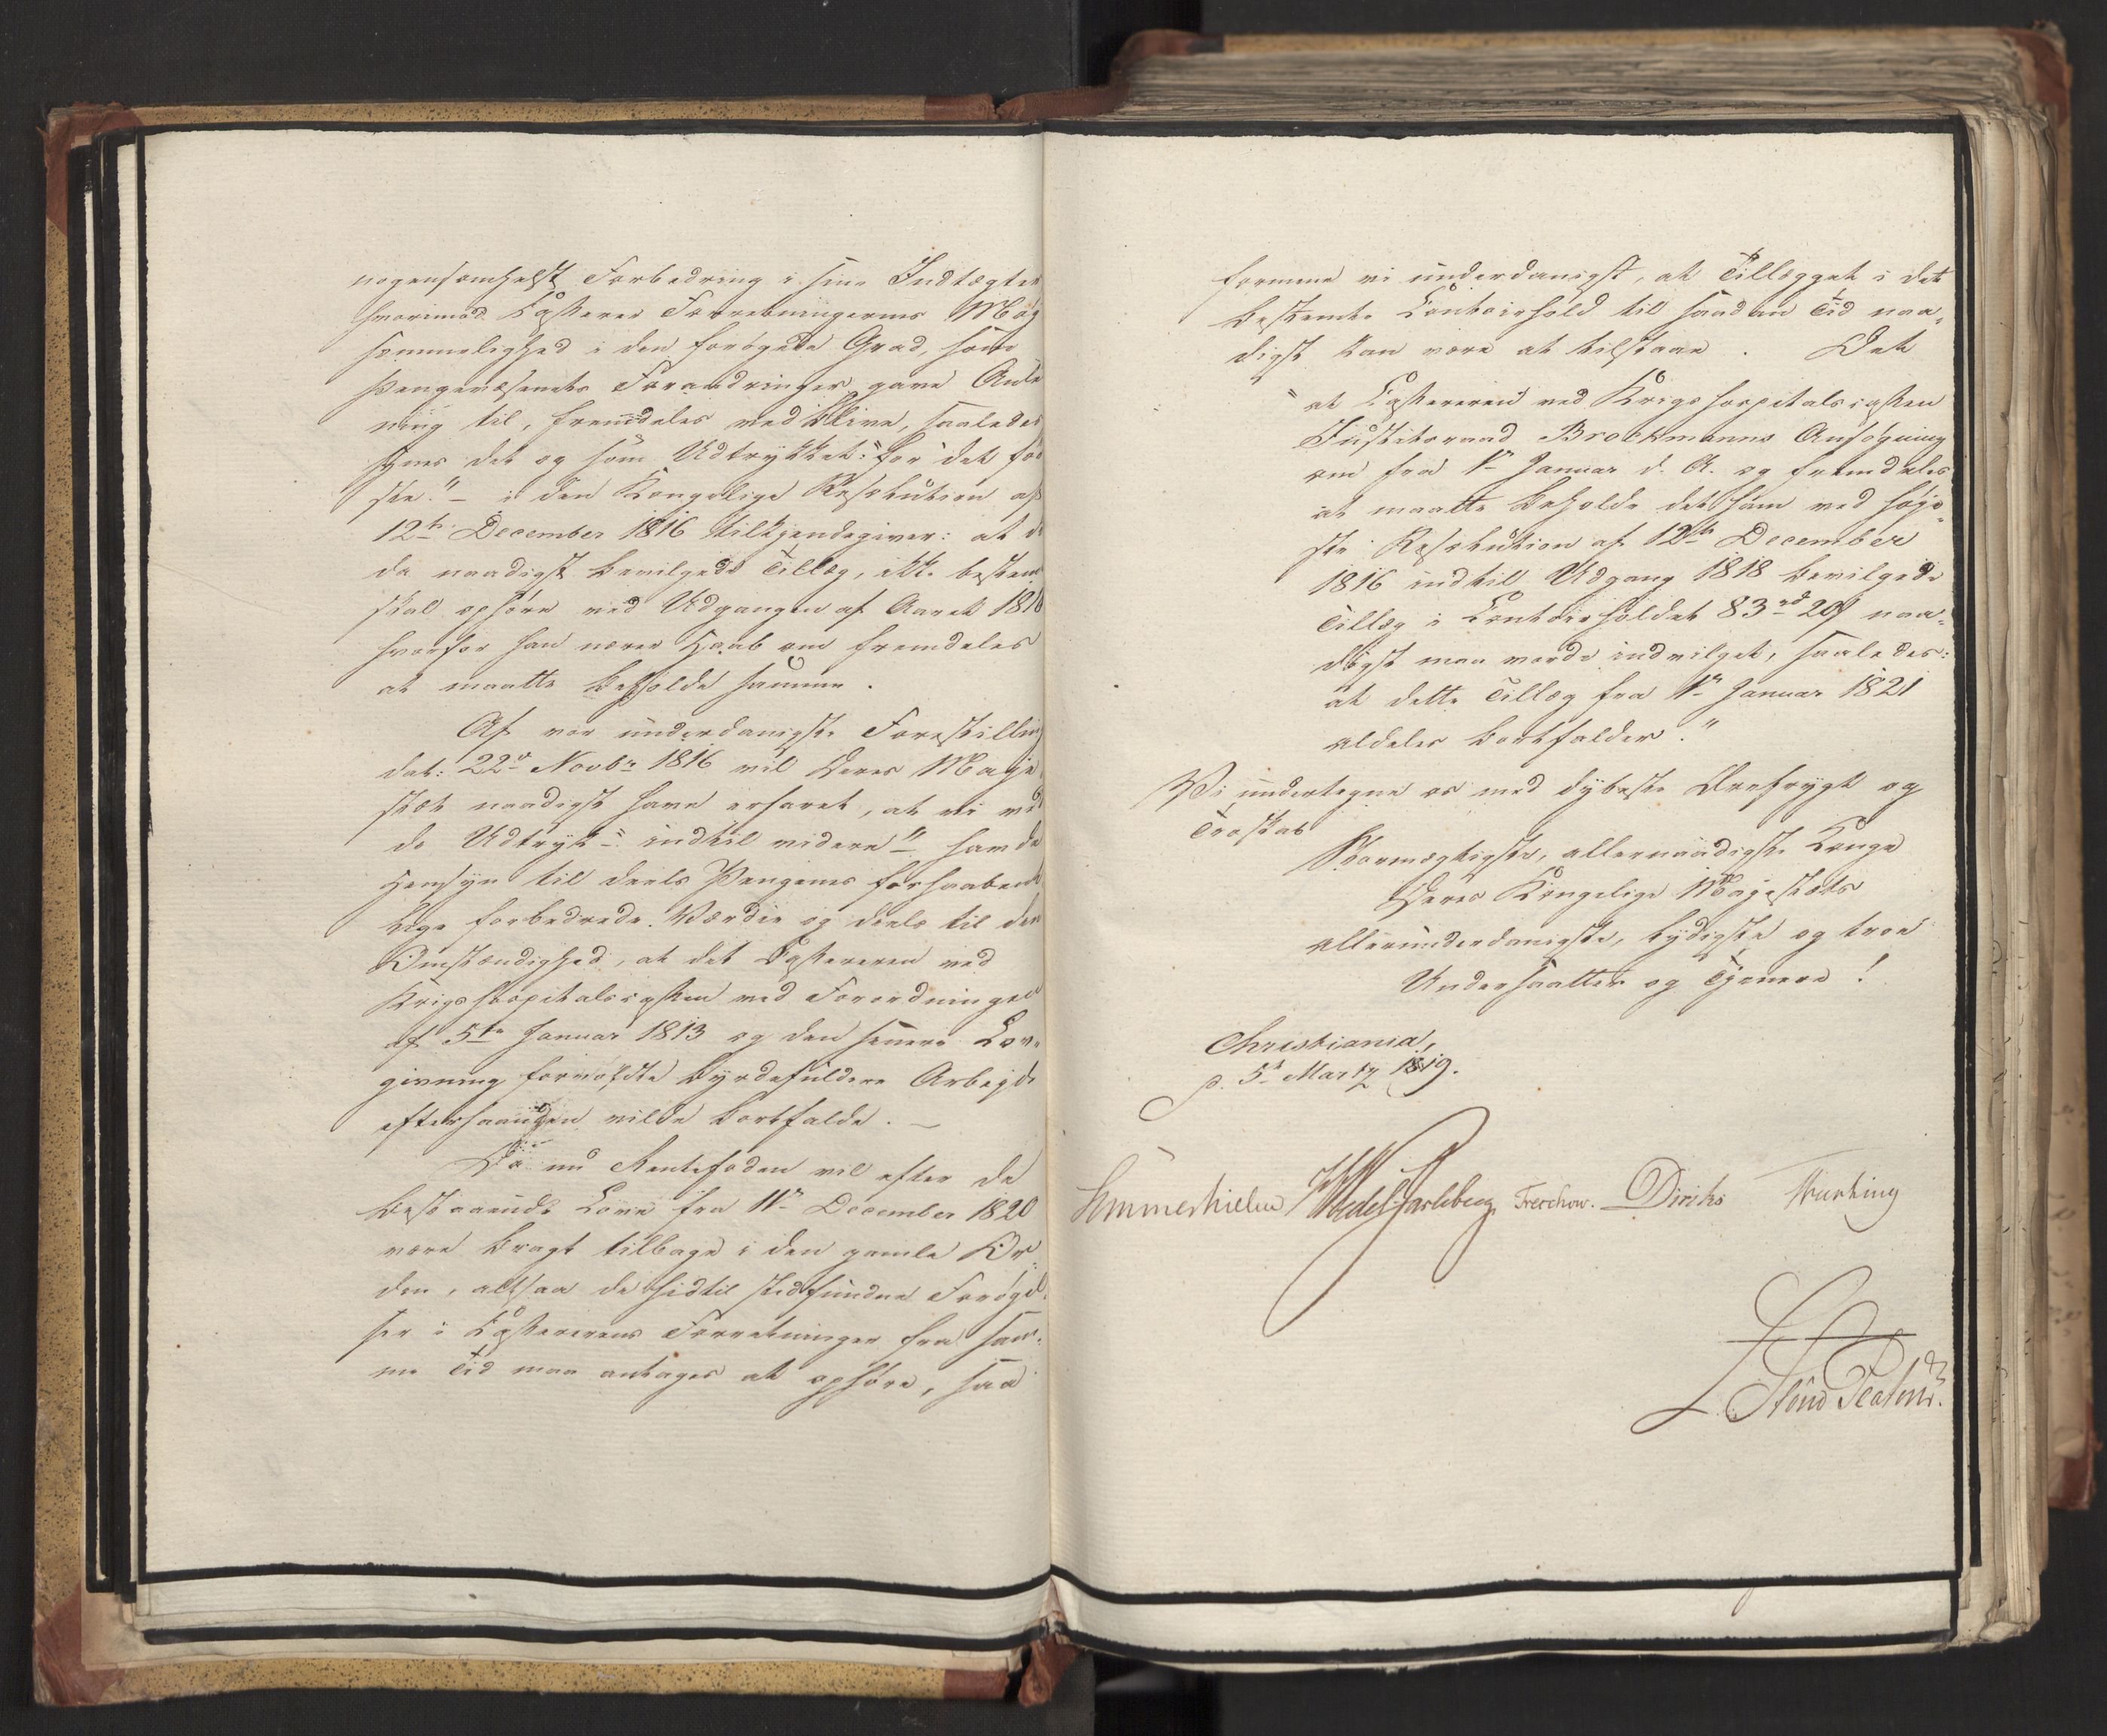 nogensomhelst Forbedring i sine Indtægter
hvorimod Casserer Forretningernes Møj
sommelighed i den forøgede Grad, som
Pengevæsenets Forandringer gave Anled
ning til, fremdeles vedblive, saaledes
synes det og som Udtrykket: "for det før
ste" – i den Kongelige Resolution af
12te December 1816 tilkjendegiver: at det
da naadigst bevilgede Tillæg, ikke bestemt
skal ophøre ved Udgangen af Aaret 1818
hvorfor han nærer Haab om fremdeles
at maatte beholde samme.
Af vor underdanigste Forestilling
dat: 22de Novbr 1816 vil Deres Maje
stæt naadigst have erfaret, at vi ved
de Udtryk "indtil videre" havde
Hensyn til deels Pengenes forhaabent
lige forbedrede Værdie og deels til den
Omstændighed, at det Cassereren ved
Krigshospitalscassen ved Forordningen
af 5te Januar 1813 og den senere Lov-
givning forvoldte byrdefuldere Arbeyde
efterhaanden vilde bortfalde. –
Da nu Rentefoden vil efter de
bestaaende Love fra 11te December 1820
være bragt tilbage i den gamle Or-
den, altsaa de hidtil stedfundne Forøgel-
ser i Cassererens Forretninger fra sam-
me Tid maa antages at ophøre, saa
formene vi underdanigst, at Tillægget i det
bestemte Contoirhold til saadan Tid naa-
digst kan være at tilstaae. Det
"at Cassereren ved Krigshospitalscassen
Justitsraad Brockmanns Ansøgning
om fra 1te Januar d. A. og fremdeles
at maatte beholde det ham ved høje-
ste Resolution af 12te December
1816 indtil Udgang 1818 bevilgede
Tillæg i Contoirholdet 83rd 20s naa-
digst maa vorde indvilget, saaledes:
at dette Tillæg fra 1te Januar 1821
aldeles bortfalder."
Vi undertegne os med dybeste Ærefrygt og
Troskab
Stormægtigste, allernaadigste Konge
Deres Kongelige Majestæts
allerunderdanigste, lydigste og troe
Undersaatter og Tjenere!
Christiania,
d. 5te Martz 1819.
Sommerhielm Wedel Jarlsberg Treschow. Diriks